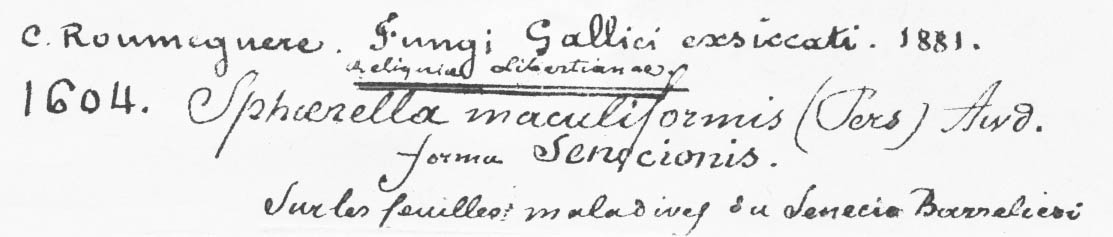 C. Roumeguere. Fungi Gallici exsiccati. 1881.
Reliquiae Libertianae
1604. Sphaerella maculiformis (Pers) Awd.
forma Senecionis.
Sur les feuilles maladives du Senecio Barrelieri